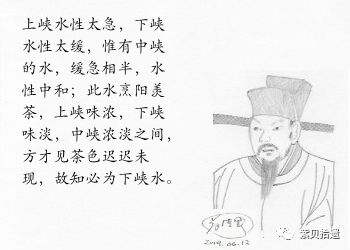 上峡水性太急，下峡
水性太缓，惟有中峡
的水，缓急相半，水
性中和；此水烹阳羡
茶，上峡味浓，下峡
味淡，中峡浓淡之间，
方才见茶色迟迟未
现，故知必为下峡水。
2019.06.12
紫贝拾遗